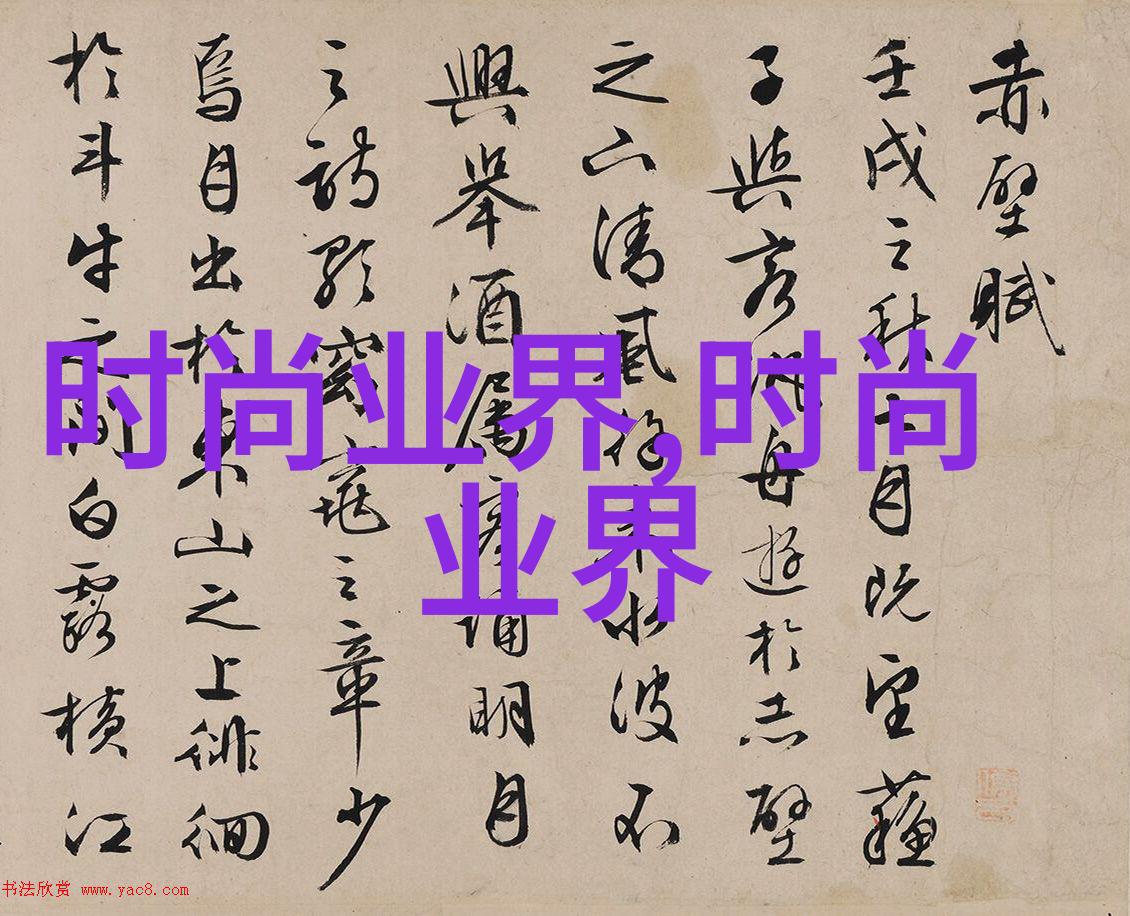 赤壁賦
壬戌之秋七月既望蘓
子與客泛舟遊於赤壁
之下清風徐來水波不
興舉酒屬客誦明月
之詩歌窈窕之章少
焉月出於東山之上徘徊
於斗牛之間白露橫江
时尚业界,时尚
业界
书法欣赏 www.yac8.com